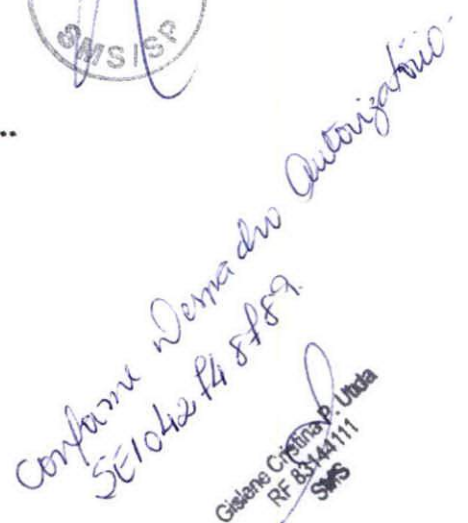 SMS/SP
Conforme Despacho Autorizatório
SEI 042748789.
Gislene Cristina P. Ueda
RF 83144111
SMS